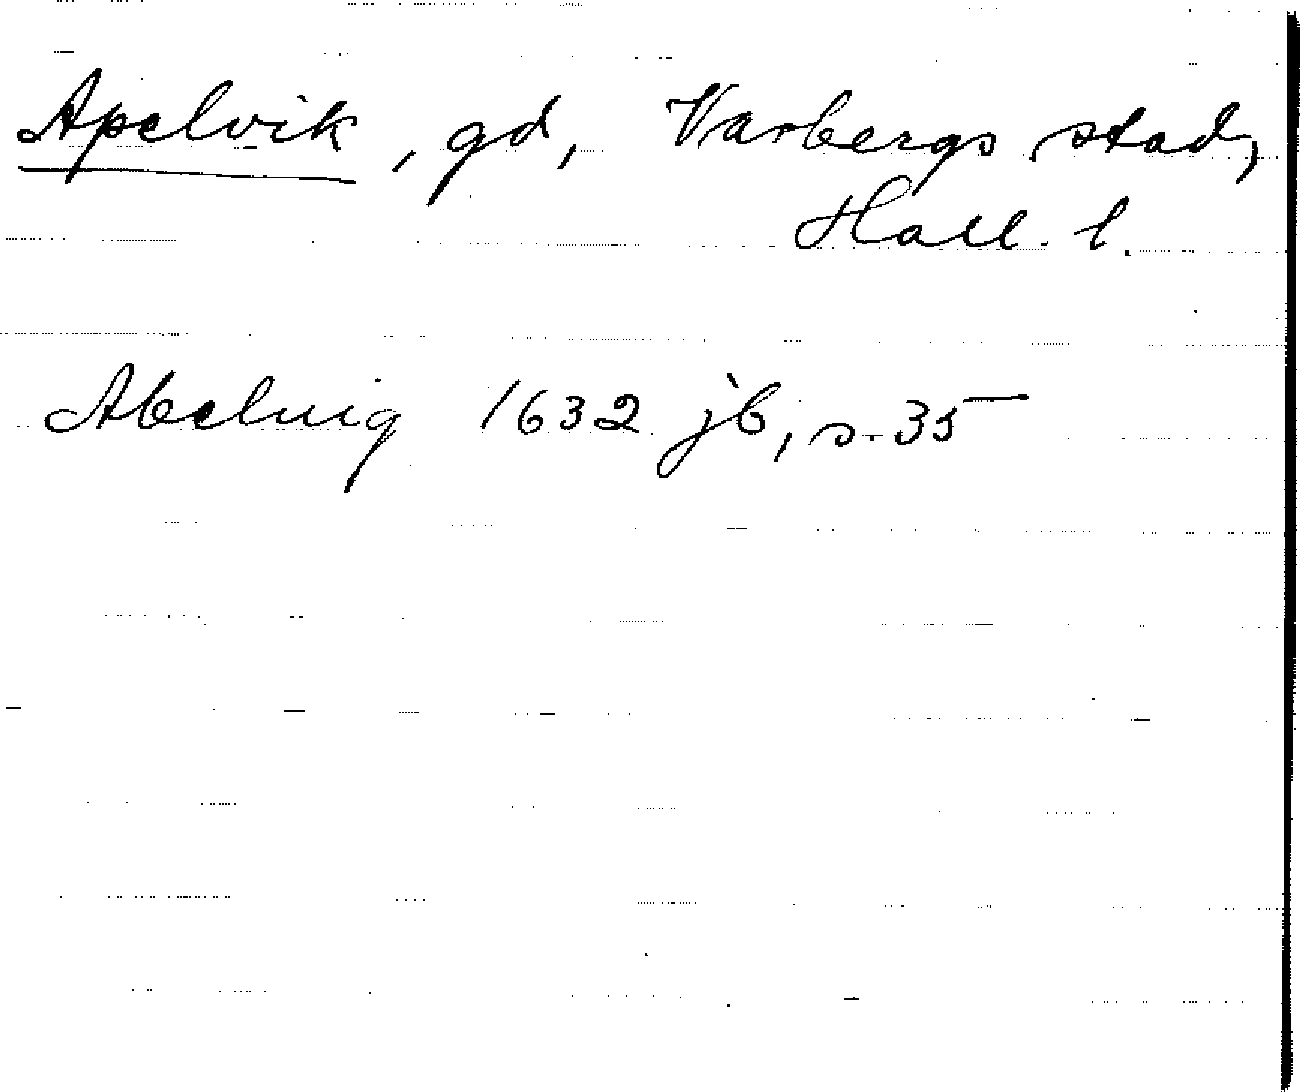 Apelvik, gd, Varbergs stad,
Hall. l.
Abeluig 1632 jb, s. 35